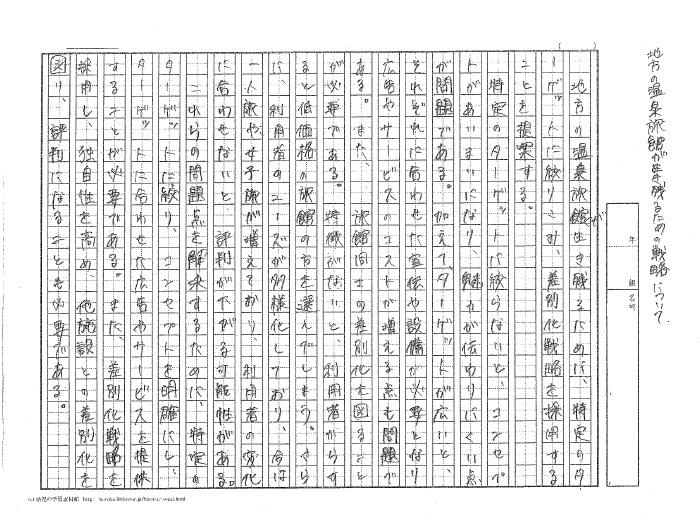 地方の温泉旅館が生き残るための戦略について
年 組 名前
地方の温泉旅館が生き残るためには、特定のタ
ーゲットに絞りこみ、差別化戦略を採用する
ことを提案する。
特定のターゲットに絞らないと、コンセプ
トがあいまいになり、魅力が伝わりにくい点
が問題である。加えて、ターゲットが広いと、
それぞれに合わせた宣伝や設備が必要となり
広告やサービスのコストが増える点も問題で
ある。また、旅館同士の差別化を図る
が必要である。特徴がないと、利用者からす
ると低価格の旅館の方を選んでしまう。さら
に、利用者のニーズが多様化しており、今は
一人旅や女子旅が増えており、利用者の変化
に合わせないと、評判が下がる可能性がある。
これらの問題点を解決するために、特定の
ターゲットに絞り、コンセプトを明確にし、
ターゲットに合わせた広告やサービスを提供
することが必要である。また、差別化戦略を
採用し、独自性を高め、他施設との差別化を
図り、評判になることも必要である。